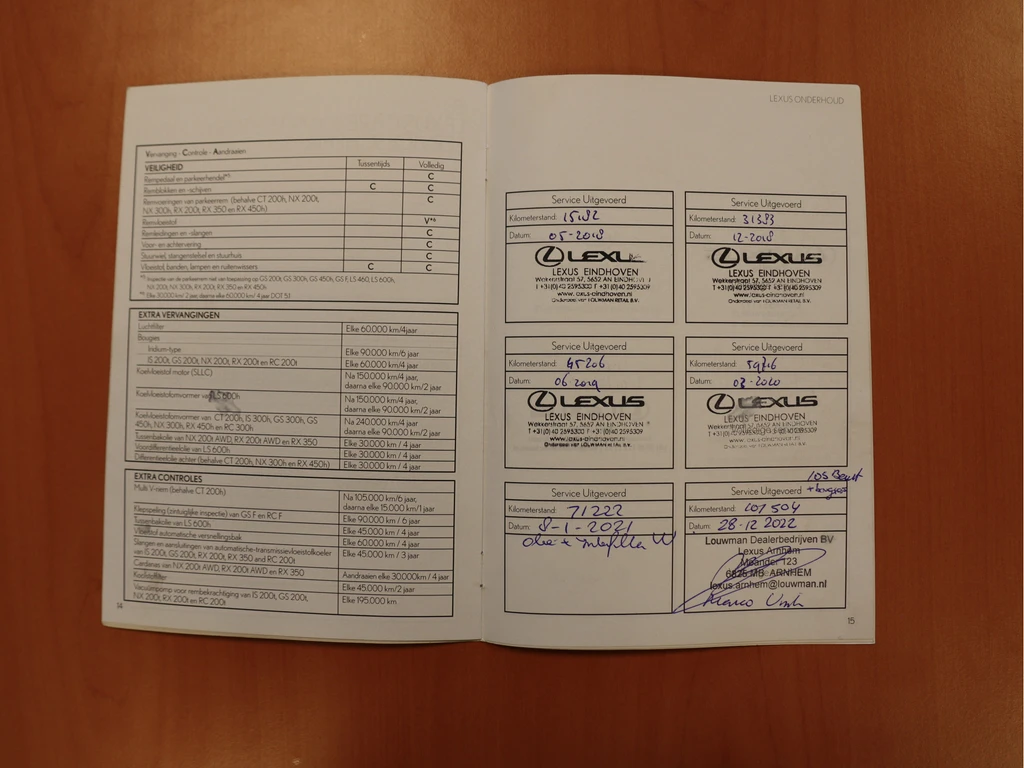 Vervanging - Controle - Aandraaien
VEILIGHEID Tussentijds Volledig
Rempedaal en parkeerhendel*³ C
Remblokken en -schijven C C
Remvoeringen van parkeerrem (behalve CT 200h, NX 200t, NX 300h, RX 200t, RX 350 en RX 450h) C
Remvloeistof V*⁴
Remleidingen en -slangen C
Voor- en achtervering C
Stuurwiel, stangenstelsel en stuurhuis C
Vloeistof, banden, lampen en ruitenwissers C C
Inspectie van de parkeerrem niet van toepassing op GS 200t, GS 300h, GS 450h, GS F, LS 460, LS 600h,
NX 200t, NX 300h, RX 200t, RX 350 en RX 450h
Elke 30.000 km/ 2 jaar, daarna elke 60.000 km/ 4 jaar DOT 5.1
EXTRA VERVANGINGEN
Luchtfilter Elke 60.000 km/4jaar
Bougies
Iridium-type Elke 90.000 km/6 jaar
IS 200t, GS 200t, NX 200t, RX 200t en RC 200t Elke 60.000 km/4 jaar
Koelvloeistof motor (SLLC) Na 150.000 km/4 jaar,
daarna elke 90.000 km/2 jaar
Koelvloeistofomvormer van LS 600h Na 150.000 km/4 jaar,
daarna elke 90.000 km/2 jaar
Koelvloeistofomvormer van CT 200h, IS 300h, GS 300h, GS
450h, NX 300h, RX 450h en RC 300h Na 240.000 km/4 jaar
daarna elke 90.000 km/2 jaar
Tussenbakolie van NX 200t AWD, RX 200t AWD en RX 350 Elke 30.000 km / 4 jaar
Elke 30.000 km / 4 jaar
Differentieelolie achter (behalve CT 200h, NX 300h en RX 450h) Elke 30.000 km / 4 jaar
EXTRA CONTROLES
Multi V-riem (behalve CT 200h) Na 105.000 km/6 jaar,
daarna elke 15.000 km/1 jaar
Klepspeling (zintuiglijke inspectie) van GS F en RC F Elke 90.000 km / 6 jaar
Tussenbakolie van LS 600h Elke 45.000 km / 4 jaar
Vloeistof automatische versnellingsbak Elke 60.000 km / 4 jaar
Slangen en aansluitingen van automatische-transmissievloeistofkoeler
van IS 200t, GS 200t, RX 200t, RX 350 and RC 200t Elke 45.000 km / 3 jaar
Cardanas van NX 200t AWD, RX 200t AWD en RX 350 Aandraaien elke 30.000km / 4 jaar
Koolstoffilter Elke 45.000 km/2 jaar
Vacuümpomp voor rembekrachtiging van IS 200t, GS 200t,
NX 200t, RX 200t en RC 200t Elke 195.000 km
14
LEXUS ONDERHOUD
Service Uitgevoerd
Kilometerstand: 15182
Datum: 05-2018
LEXUS
LEXUS EINDHOVEN
Wekkerstraat 57, 5652 AN EINDHOVEN
T +31(0)40 2595300 F +31 (0)40 2595309
www.lexus-eindhoven.nl
Onderdeel van LOUWMAN RETAIL B.V.
Service Uitgevoerd
Kilometerstand: 31383
Datum: 12-2018
LEXUS
LEXUS EINDHOVEN
Wekkerstraat 57, 5652 AN EINDHOVEN
T +31(0)40 2595300 F +31(0)40 2595309
www.lexus-eindhoven.nl
Onderdeel van LOUWMAN RETAIL B.V.
Service Uitgevoerd
Kilometerstand: 45206
Datum: 06 2019
LEXUS
LEXUS EINDHOVEN
Wekkerstraat 57, 5652 AN EINDHOVEN
T +31(0)40 2595300 F +31 (0)40 2595309
www.lexus-eindhoven.nl
Onderdeel van LOUWMAN RETAIL B.V.
Service Uitgevoerd
Kilometerstand:
Datum:
LEXUS
LEXUS EINDHOVEN
Wekkerstraat 57, 5652 AN EINDHOVEN
T +31(0)40 2595300 F +31(0)40 2595309
www.lexus-eindhoven.nl
Onderdeel van LOUWMAN RETAIL B.V.
Service Uitgevoerd
Kilometerstand: 71222
Datum: 8-1-2021
Service Uitgevoerd
Kilometerstand: 107504
Datum: 28-12 2022
Louwman Dealerbedrijven BV
Lexus Arnhem
Meander 123
6825 MB ARNHEM
lexus.arnhem@louwman.nl
15